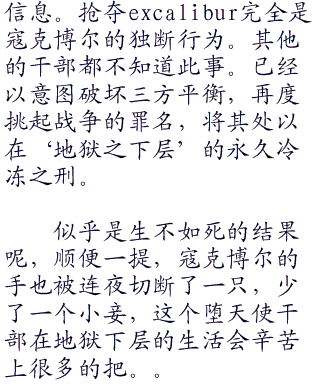 信息。抢夺excalibur完全是
寇克博尔的独断行为。其他
的干部都不知道此事。已经
以意图破坏三方平衡，再度
挑起战争的罪名，将其处以
在‘地狱之下层’的永久冷
冻之刑。
似乎是生不如死的结果
呢，顺便一提，寇克博尔的
手也被连夜切断了一只，少
了一个小妾，这个堕天使干
部在地狱下层的生活会辛苦
上很多的把。。